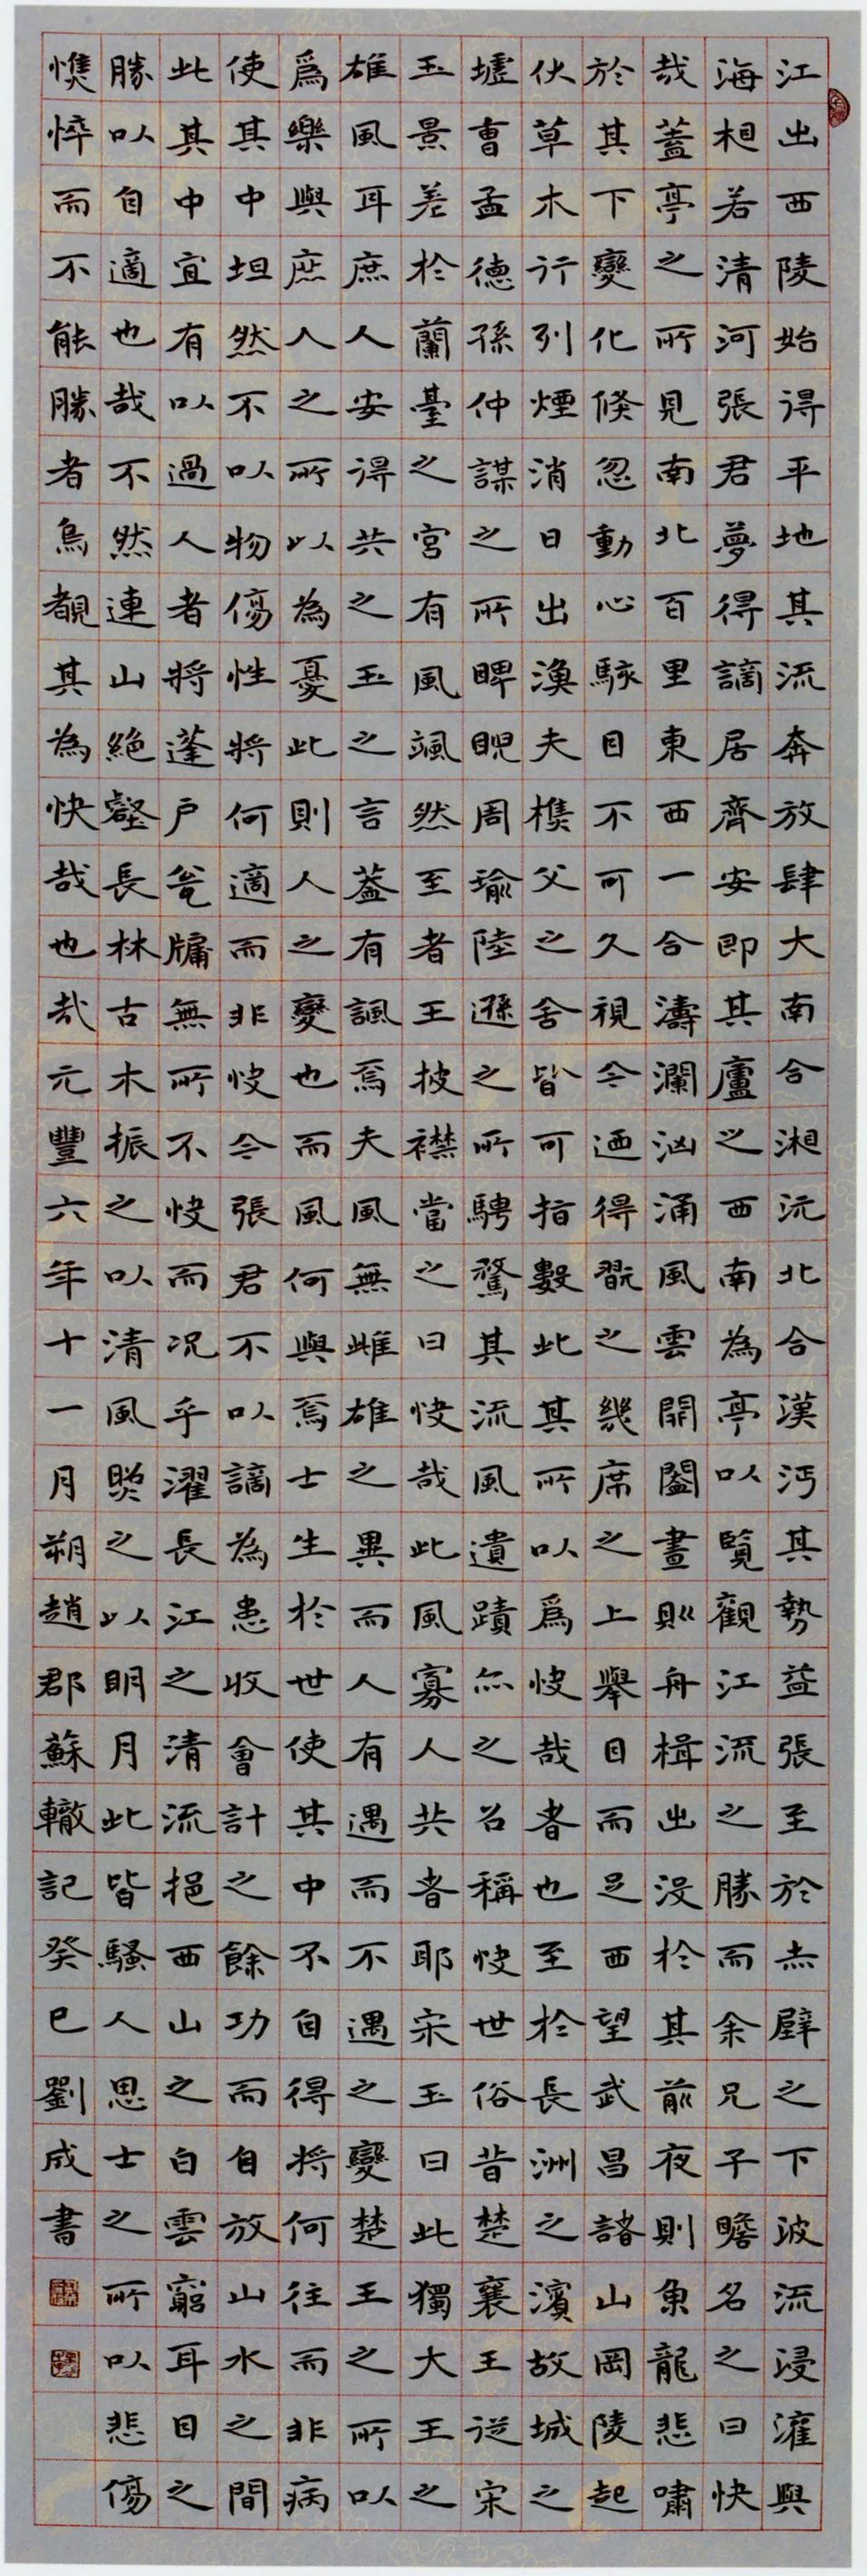 江出西陵始得平地其流奔放肆大南合湘沅北合漢沔其勢益張至於赤壁之下波流浸灌與
海相若清河張君夢得謫居齊安即其廬之西南為亭以覽觀江流之勝而余兄子瞻名之曰快
哉蓋亭之所見南北百里東西一合濤瀾洶涌風雲開闔晝則舟楫出沒於其前夜則魚龍悲嘯
於其下變化倏忽動心駭目不可久視今迺得翫之幾席之上舉目而足西望武昌諸山岡陵起
伏草木行列煙消日出漁夫樵父之舍皆可指數此其所以爲快哉者也至於長洲之濱故城之
墟曹孟德孫仲謀之所睥睨周瑜陸遜之所騁騖其流風遺蹟亦之召稱快世俗昔楚襄王從宋
玉景差於蘭臺之宮有風颯然至者王披襟當之曰快哉此風寡人共者耶宋玉曰此獨大王之
雄風耳庶人安得共之玉之言蓋有諷焉夫風無雌雄之異而人有遇而不遇之變楚王之所以
爲樂與庶人之所以為憂此則人之變也而風何與焉士生於世使其中不自得將何往而非病
使其中坦然不以物傷性將何適而非快今張君不以謫為患收會計之餘功而自放山水之間
此其中宜有以過人者將蓬戶瓮牖無所不快而況乎濯長江之清流挹西山之白雲窮耳目之
勝以自適也哉不然連山絕壑長林古木振之以清風照之以明月此皆騷人思士之所以悲傷
憔悴而不能勝者烏覩其為快哉也哉元豐六年十一月朔趙郡蘇轍記癸巳劉成書